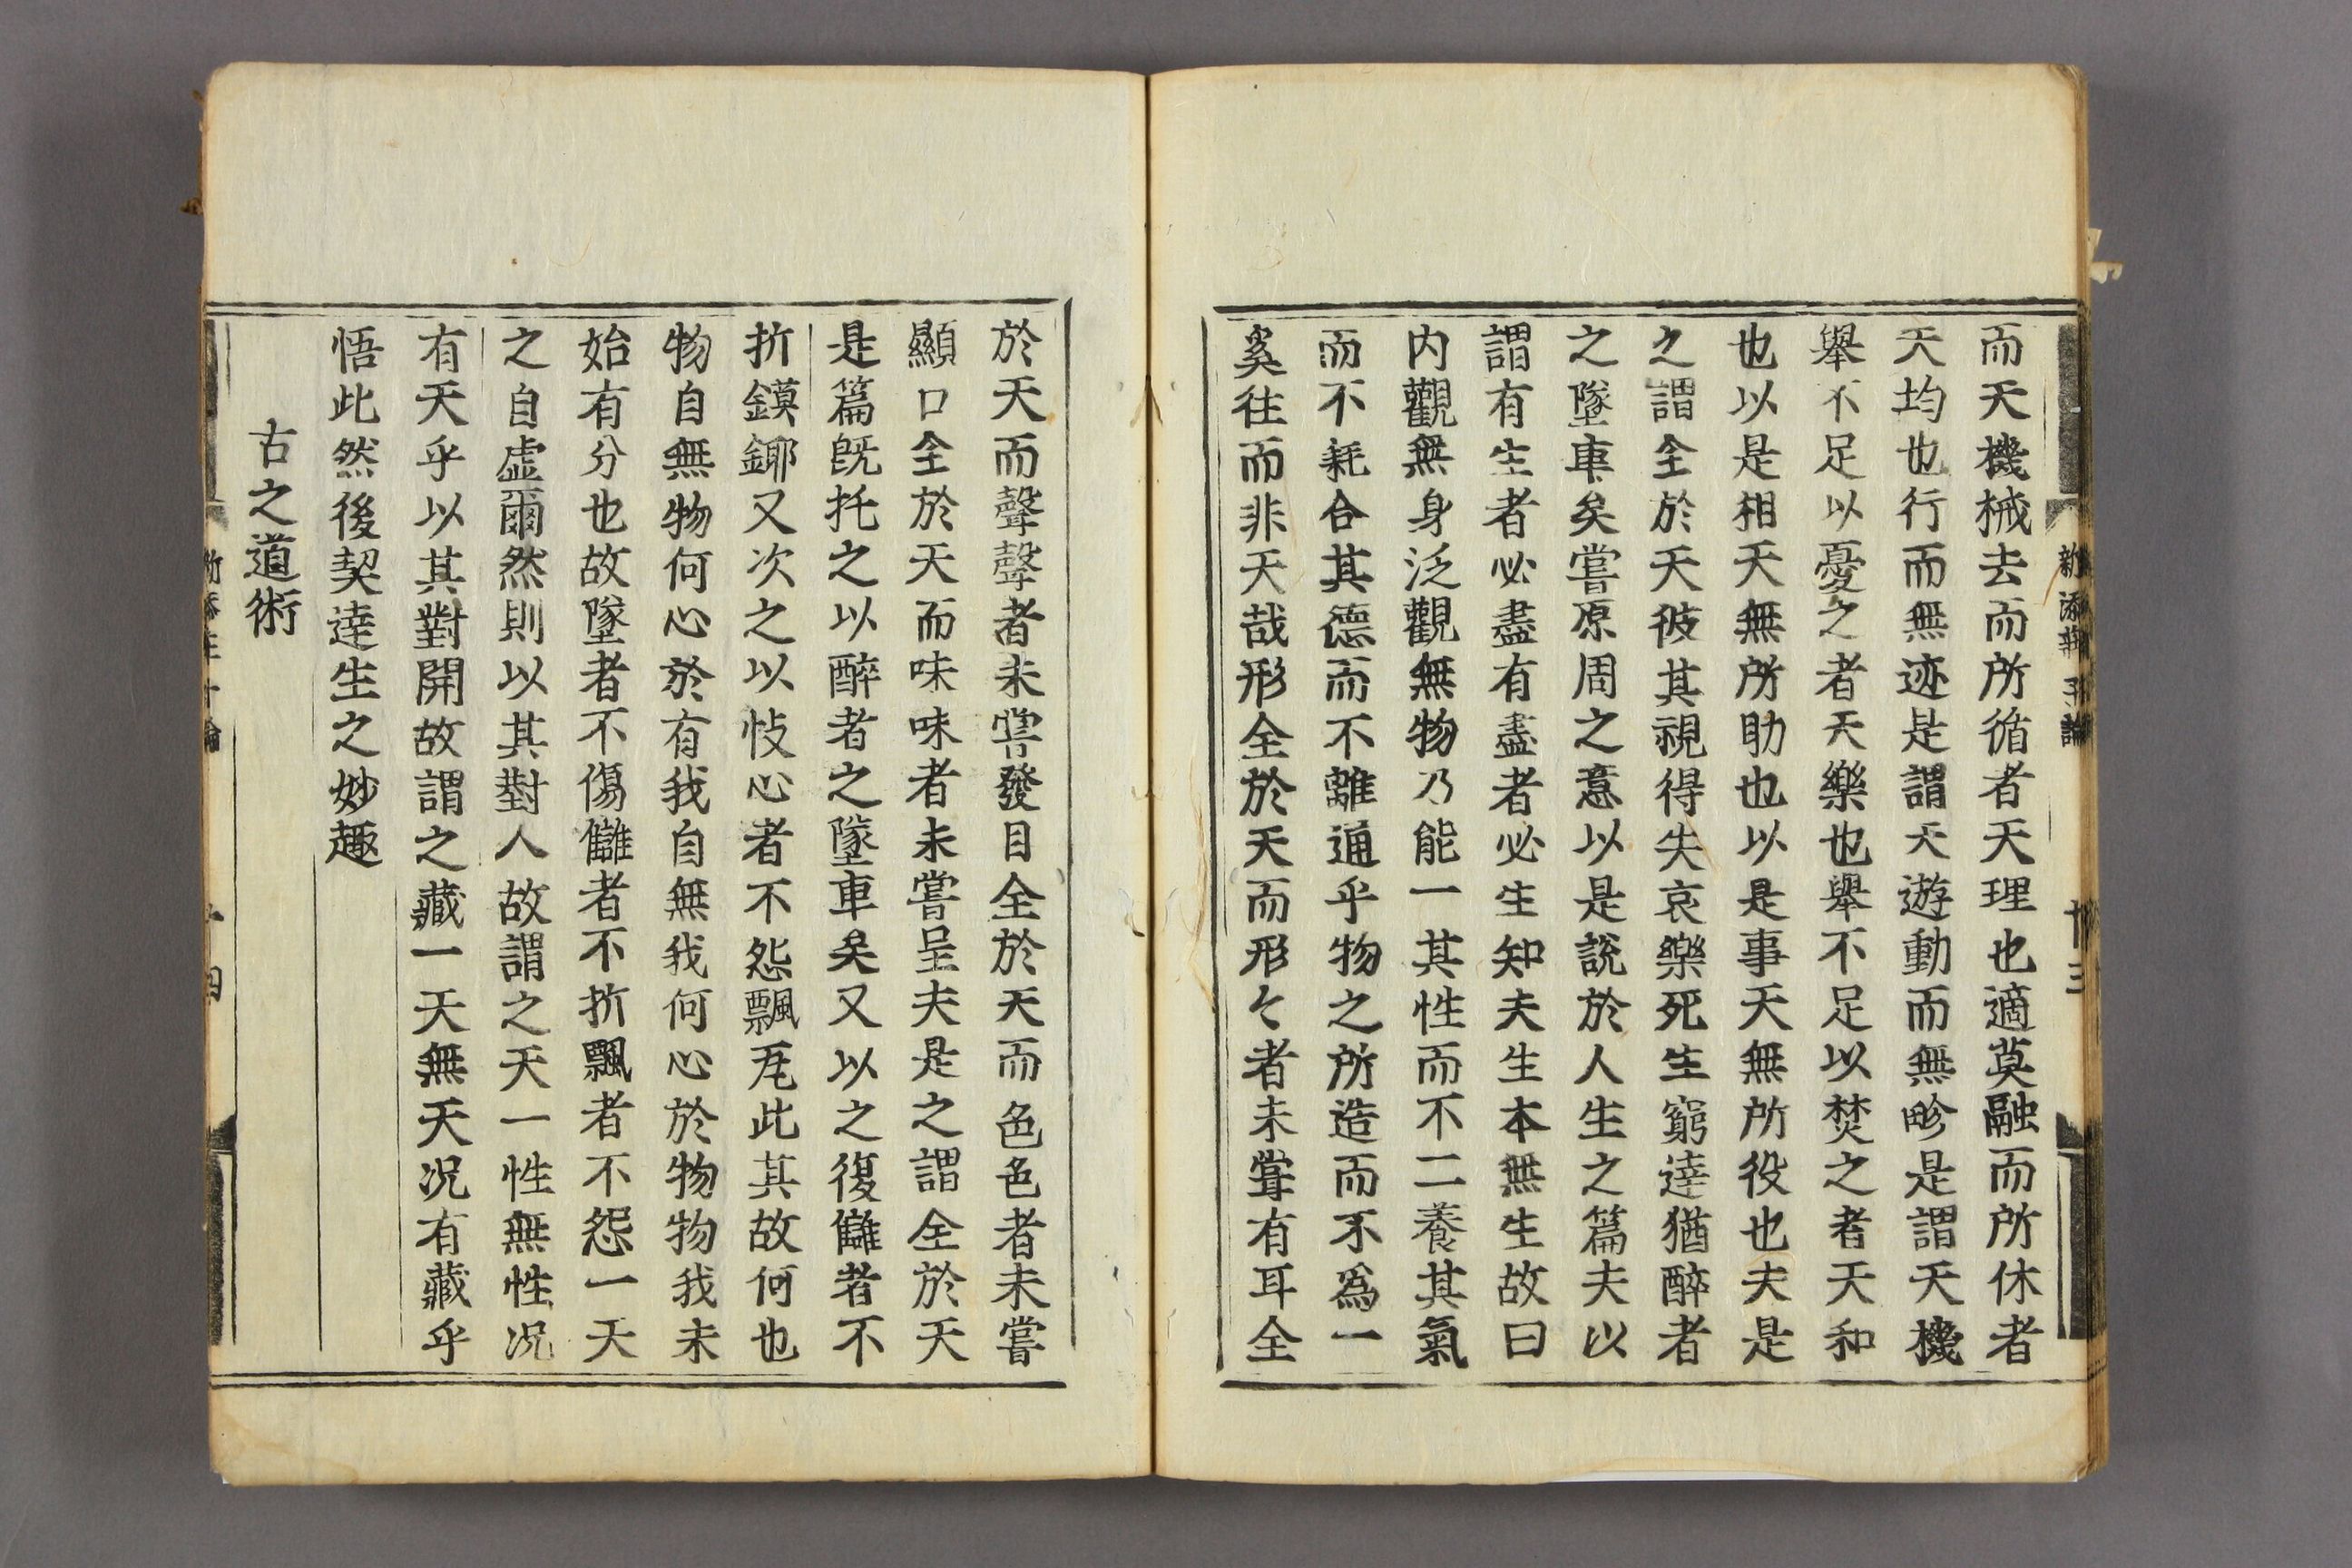 而天機械去而所循者天理也適莫融而所休者
天均也行而無迹是謂天遊動而無畛是謂天機
舉不足以憂之者天樂也舉不足以焚之者天和
也以是相天無所助也以是事天無所役也夫是
之謂全於天彼其視得失哀樂死生窮達猶醉者
之墜車矣嘗原周之意以是說於人生之篇夫以
謂有生者必盡有盡者必生知夫生本無生故曰
内觀無身泛觀無物乃能一其性而不二養其氣
而不耗合其德而不離通乎物之所造而不爲一
奚往而非天哉形全於天而形々者未嘗有耳全
於天而聲聲者未嘗發目全於天而色色者未嘗
顯口全於天而味味者未嘗呈夫是之謂全於天
是篇旣托之以醉者之墜車矣又以之復讎者不
折鏌鎁又次之以忮心者不怨飄瓦此其故何也
物自無物何心於有我自無我何心於物物我未
始有分也故墜者不傷讎者不折飄者不怨一天
之自虛爾然則以其對人故謂之天一性無性况
有天乎以其對開故謂之藏一天無天况有藏乎
悟此然後契達生之妙趣
古之道術
十四